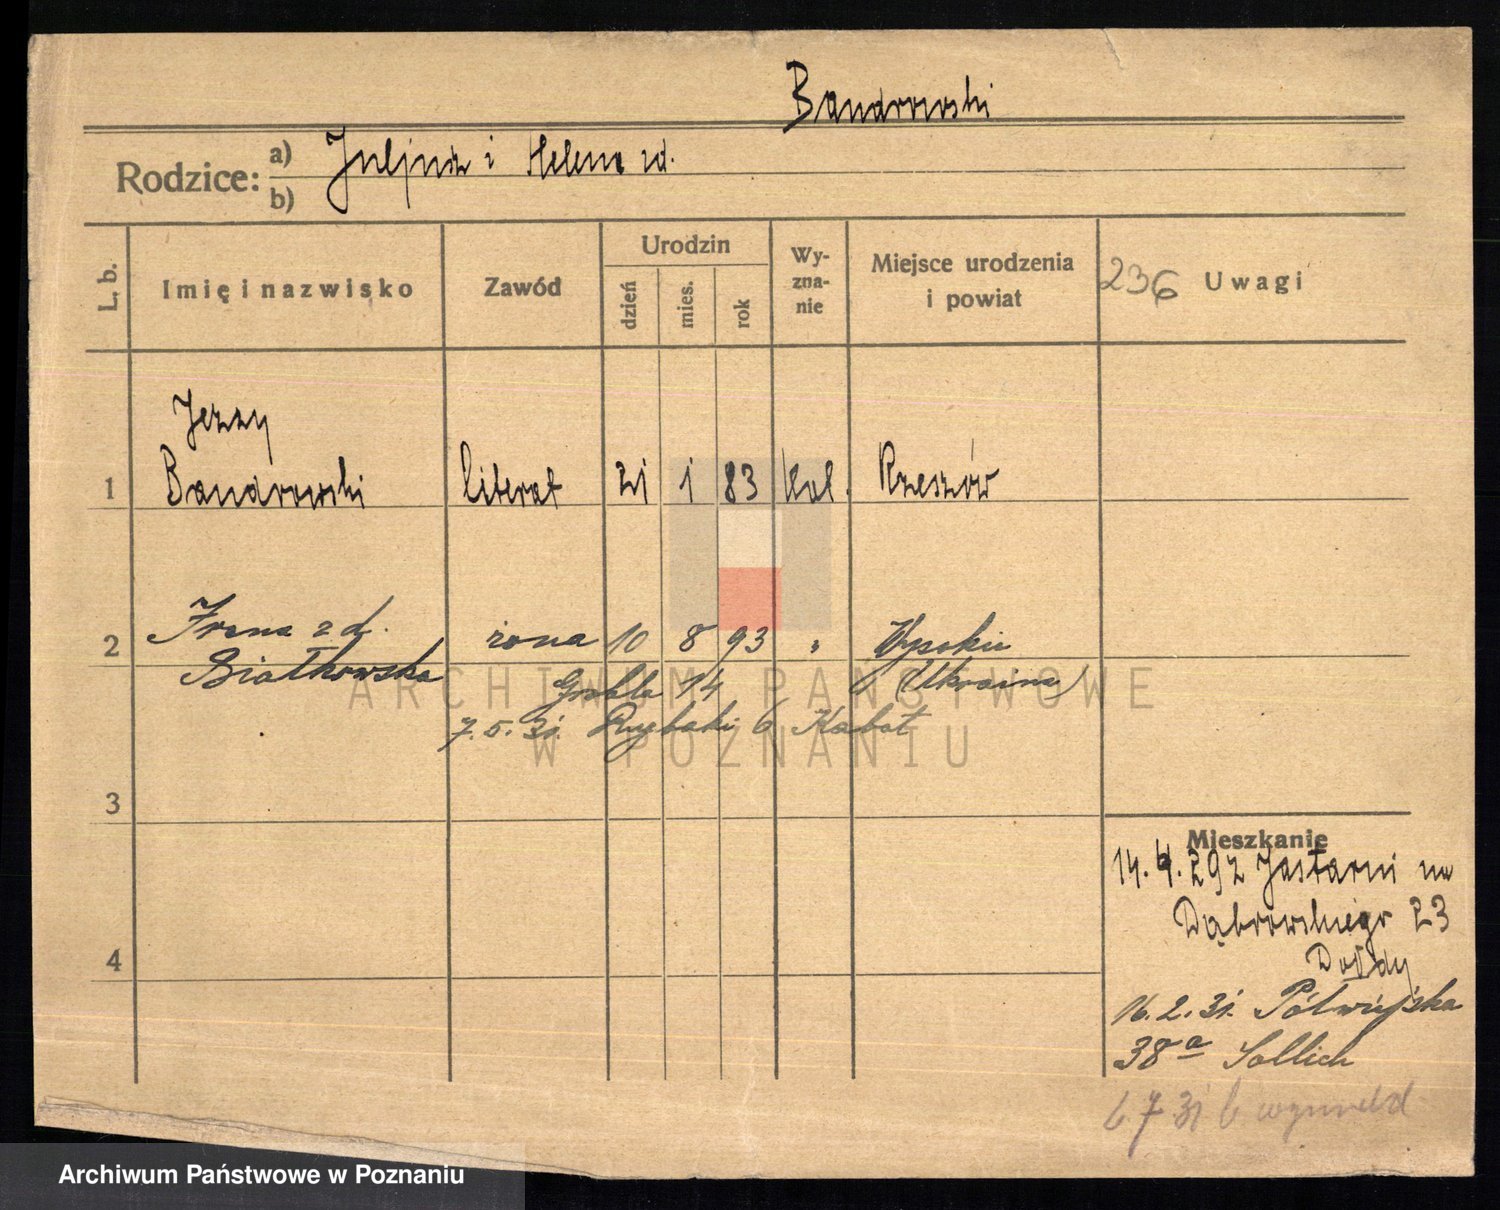 Bandrowski
Rodzice: a) Juljusz i Helena zd.
b)
L. b. Imię i nazwisko Zawód Urodzin dzień mies. rok Wy-zna-nie Miejsce urodzenia i powiat 236 Uwagi
Jerzy
1 Bandrowski literat 21 1 83 kat. Rzeszów
Irena z d.
2 żona 10 8 93 " Wysokie
Białkowska (Ukraina)
Grobla 14
7.5.31. Rybaki 6 Kabat
3
4
Mieszkanie
14.4.29 z Jastarni na
Dąbrowskiego 23
16.2.31. Półwiejska
38a Sollich
6 7 31
ARCHIWUM PAŃSTWOWE
W POZNANIU
Archiwum Państwowe w Poznaniu